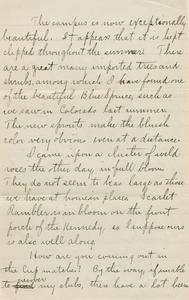 The campus is now exceptionally
beautiful. It appears that it is kept
clipped throughout the summer. There
are a great many imported trees and
shrubs, among which I have found one
of the beautiful Blue Spruce, such as
we saw in Colorado last summer.
The new sprouts make the bluish
color very obvious even at a distance.
I came upon a cluster of wild
roses the other day, in full bloom.
They do not seem to be as large as those
we have at houseau place. Scarlet
Rambler is in bloom on the front
porch of the Kennedy, so I suppose ours
is also well along.
How are you coming out in
the Cup matches? By the way, if unable
to my clubs, there have a lot been